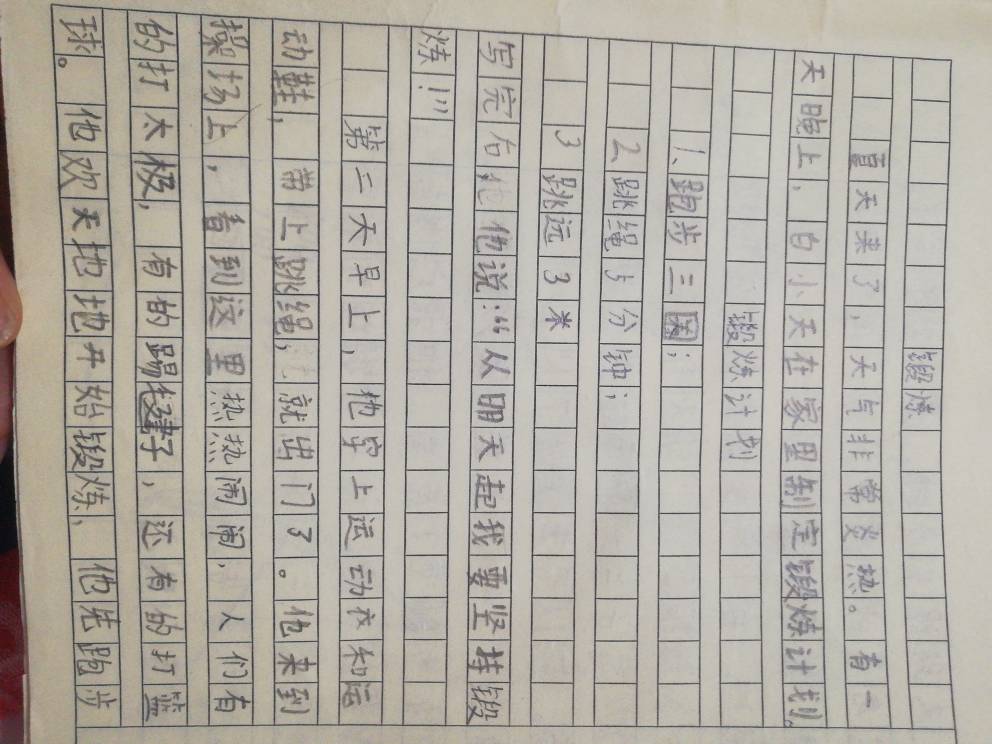 锻炼
夏天来了,天气非常炎热。有一
天晚上,白小天在家里制定锻炼计划。
锻炼计划
1、跑步三圈;
2、跳绳5分钟;
3 跳远3米
写完后他说:“从明天起我要坚持锻
炼!”
第二天早上,他穿上运动衣和运
动鞋,带上跳绳,就出门了。他来到
操场上,看到这里热热闹闹,人们有
的打太极,有的踢毽子,还有的打篮
球。他欢天地地开始锻炼,他先跑步